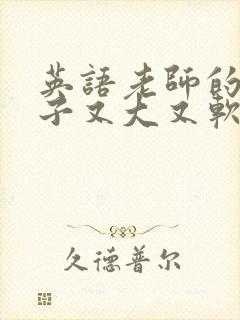 英語老師的
子又大又軟
久德普尔